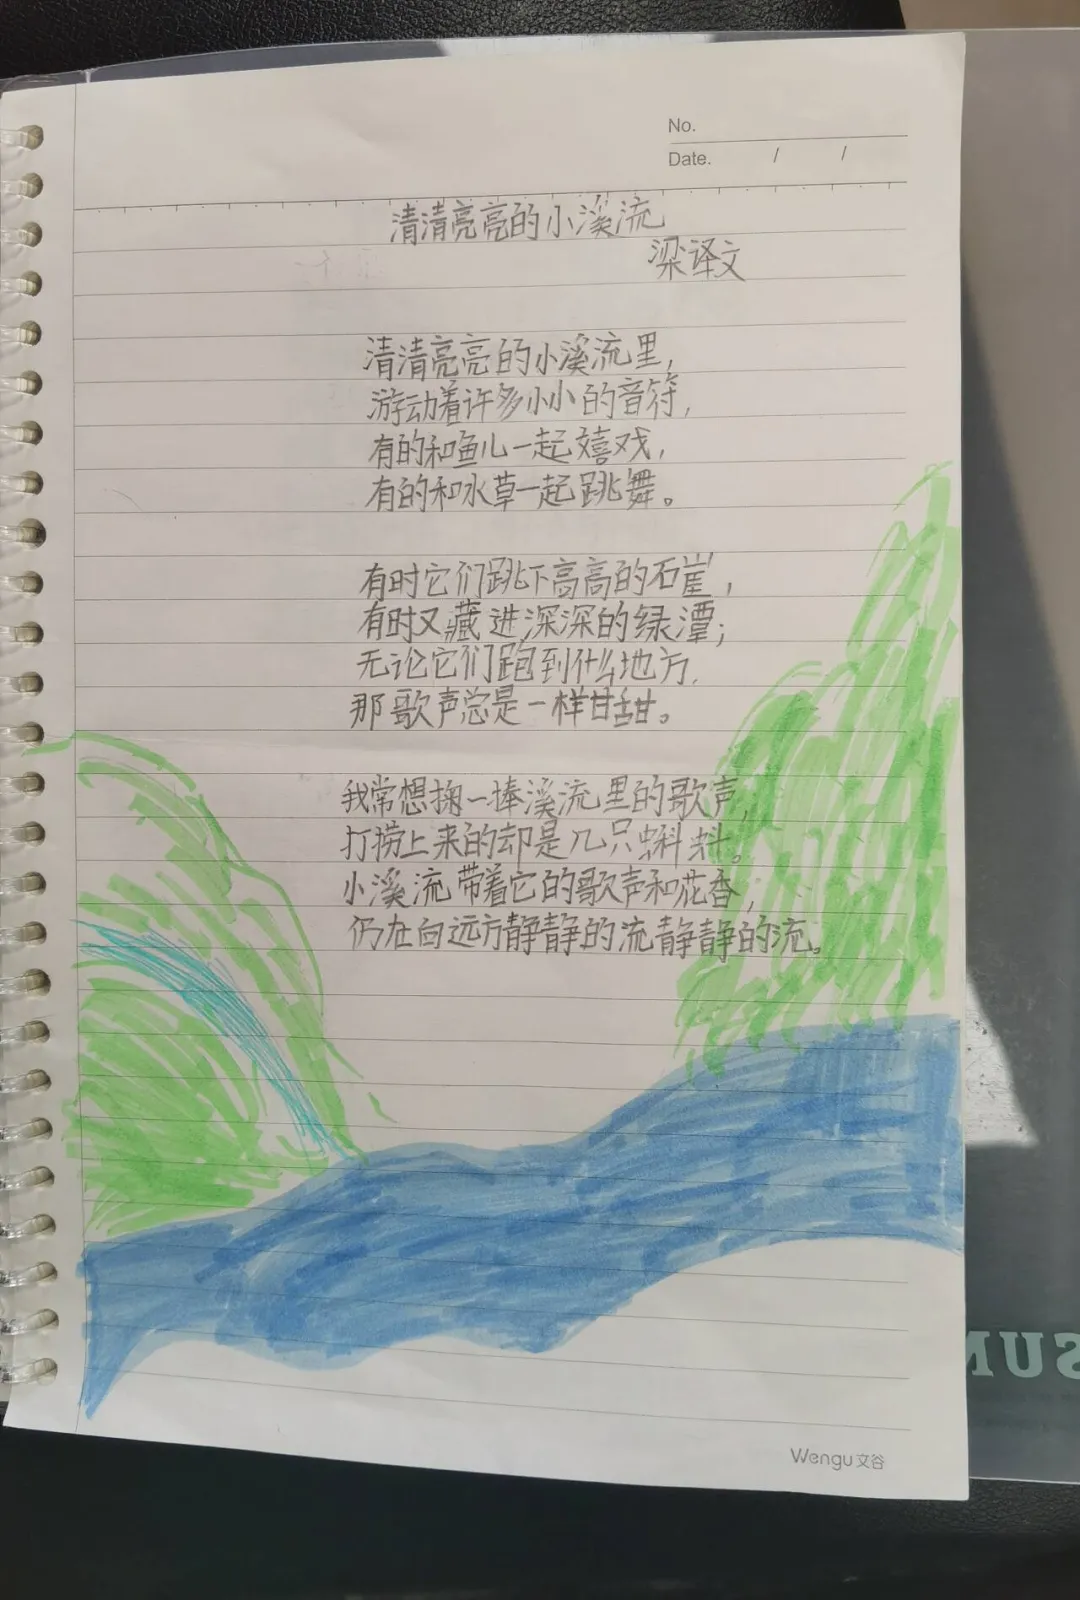 No.
Date. / /
清清亮亮的小溪流
梁译文
清清亮亮的小溪流里,
游动着许多小小的音符,
有的和鱼儿一起嬉戏,
有的和水草一起跳舞。
有时它们跳下高高的石崖,
有时又藏进深深的绿潭;
无论它们跑到什么地方,
那歌声总是一样甘甜。
我常想掬一捧溪流里的歌声,
打捞上来的却是几只蝌蚪。
小溪流带着它的歌声和花香,
仍在向远方静静的流静静的流。
Wengu文谷
SUN